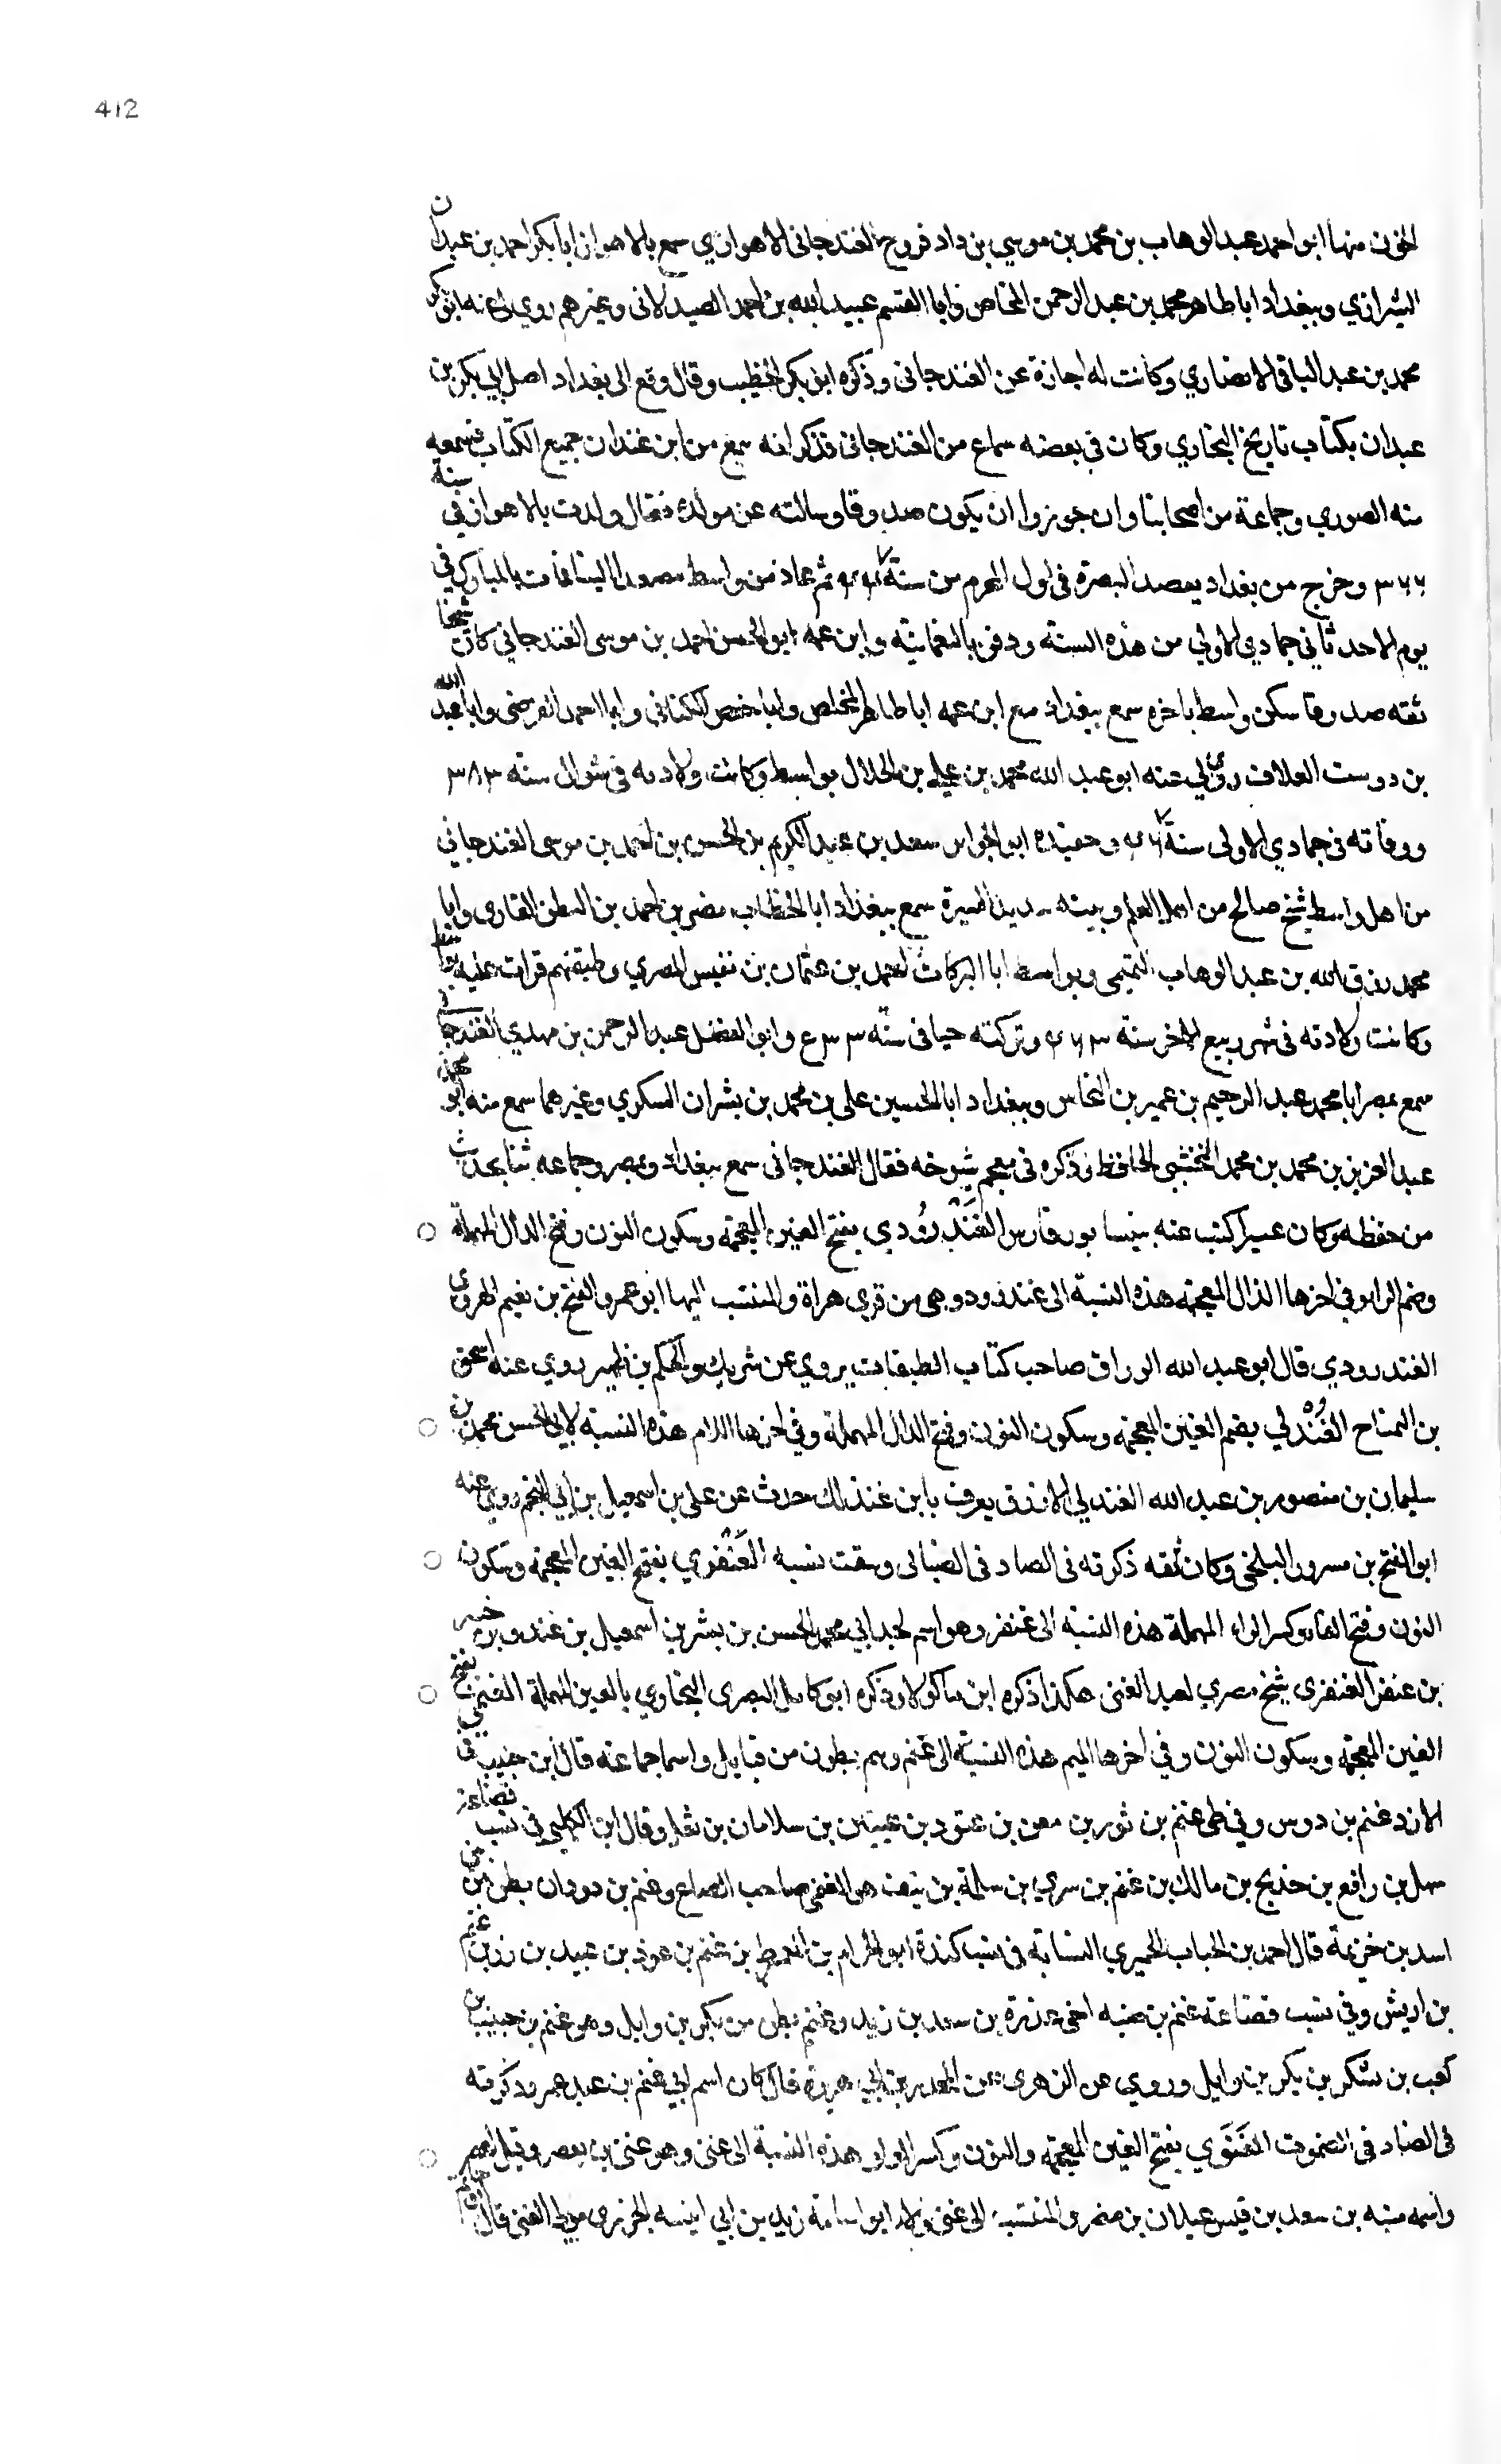 412
الخزن منها ابو احمد عبد الوهاب بن محمد بن موسي بن داد فروخ الغندجانى الاهوازي سمع بالاهواز ابا بكر احمد بن عبدان
الشيرازي وببغداد ابا طاهر محمد بن عبد الرحمن المخلص وابا القسم عبيد الله بن احمد الصيدلانى وغيرهم روي لنا عنه ابو بكر
محمد بن عبد الباقى الانصاري وكانت له اجازة عن الغندجانى وذكره ابو بكر الخطيب وقال وقع الى بغداد اصل ابي بكر بن
عبدان بكتاب تاريخ البخاري وكان في بعضه سماع من الغندجانى فذكر انه سمع من ابن عبدان جميع الكتاب فسمعه
منه الصوري وجماعة من اصحابنا وان جوزوا ان يكون صدوقا وسالته عن مولده فقال ولدت بالاهواز في سنة
٣٦٦ وخرج من بغداد يقصد البصرة فى اول المحرم من سنة ثم عاد من واسط مصعدا الينا فمات بالمبارك في
يوم الاحد ثاني جمادي الاولي من هذه السنة ودفن بالنعمانية وابن عمه ابو الحسن احمد بن موسى الغندجاني كان شيخا
ثقه صدوقا سكن واسط باخره سمع ببغداد مع ابن عمه ابا طاهر المخلص وابا حفص الكتاني وابا احمد الفرضى وابا عبد الله
بن دوست العلاف روى لي عنه ابو عبد الله محمد بن علي بن الجلال بواسط وكانت ولادته فى شوال سنة ٣٨٣
ووفاته فى جمادي الاولى سنة وحفيده ابو الجوايز سعد بن عبد الكريم بن الحسن بن احمد بن موسى الغندجاني
من اهل واسط شيخ صالح من اهل العلم وبيته سديد السيرة سمع ببغداد ابا الخطاب نصر بن احمد بن البطر القاري وابا
محمد رزق الله بن عبد الوهاب التميمى وبواسط ابا البركات احمد بن عثمان بن نفيس المصري وطبقتهم قرات عليه بواسط
وكانت ولادته فى شهر ربيع الاخر سنة ٤٦٣ وتركته حيا فى سنة ٥٣٣ وابو الفضل عبد الرحمن بن مهدي الغندجانى
سمع بمصر ابا محمد عبد الرحيم بن عمير بن النحاس وببغداد ابا الحسين على بن محمد بن بشران السكري وغيرهما سمع منه ابو محمد
عبد العزيز بن محمد بن محمد النخشبى الحافظ وذكره فى معجم شيوخه فقال الغندجانى سمع ببغداد وبمصر وجماعه ثنا بحديث
من حفظه وكان عسيرا كتب عنه بنيسابور وفارس الغَنْدرُودي بفتح الغين المعجمة وسكون النون وفتح الدال المهملة
وضم الراء وفي اخرها الذال المعجمة هذه النسبة الى غندرود وهي من قري هراة والمنتسب اليها ابو عمرو الفتح بن نعيم الهروي
الغندرودي قال ابو عبد الله الوراق صاحب كتاب الطبقات يروي عن شريك والحكم بن ظهير روي عنه اسحق
بن الهياج الغُنْدَلي بضم الغين المعجمة وسكون النون وفتح الدال المهملة وفي اخرها اللام هذه النسبة لابي الحسن محمد بن
سليمان بن منصور بن عبد الله الغندلي الازرق يعرف بابن غندلك حدث عن على بن اسمعيل بن ابي النجم روي عنه
ابو الفتح بن مسرور البلخى وكان ثقه ذكرته فى الصاد فى الضبابى وسقت نسبه الغَنْفَري بفتح الغين المعجمة وسكون
النون وفتح الفاء وكسر الراء المهملة هذه النسبة الى غنفر وهو اسم لجد ابي محمد الحسن بن بشر بن اسمعيل بن غندوبة خير
بن غنفر الغنفرى شيخ مصري لعبد الغنى هكذا ذكره ابن ماكولا وذكره ابو كامل البصرى البخاري بالعين المهملة الغنمى بفتح
الغين المعجمة وسكون النون وفي اخرها الميم هذه النسبة الى غنم وهم بطون من قبايل واسما جماعة قال ابن حبيب فى
الازد غنم بن دوس وفي طى غنم بن ثور بن معن بن عتود بن عنين بن سلامان بن ثعل وقال ابن الكلبي في نسب قضاعة
سهل بن رافع بن خديج بن مالك بن غنم بن سري بن سلمة بن نيف هو الغنمى صاحب الصاع وغنم بن دودان بطن من بنى
اسد بن خزيمة قال احمد بن الحباب الحميري النسابة فى نسب كندة ابو الحرام بن العمرط بن غنم بن عوذ بن عبيد بن زربن غنم
بن اريش وفي نسب قضاعة غنم بن ضنه اخى عذرة بن سعد بن زيد وغنم بطن من بكر بن وايل وهو غنم بن حبيب بن
كعب بن يشكر بن بكر بن وايل وروي عن الزهرى عن المحرر بن ابي هريرة قال كان اسم ابي غنم بن عبد عمرو ذكرته
فى الصاد فى الضموت الغَنَوي بفتح الغين المعجمة والنون وكسر الواو هذه النسبة الى غنى وهو غنى بن يعصر وقيل اعصر
واسمه منبه بن سعد بن قيس عيلان بن مضر والمنتسب الى غنى ولاء ابو اسامة زيد بن ابي انيسه الجزرى مولى الغنى قال